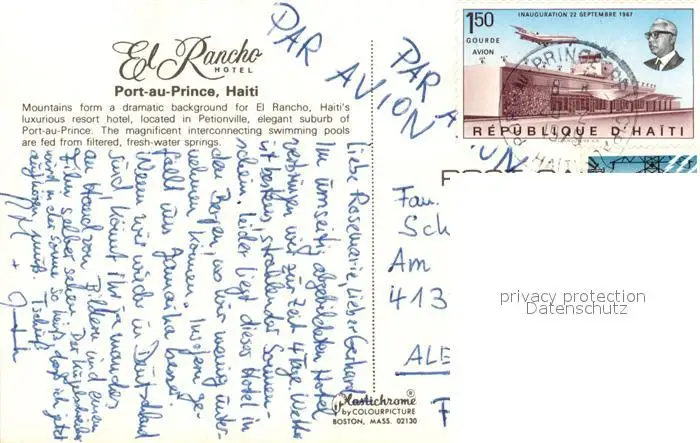 El Rancho
HOTEL
Port-au-Prince, Haiti
Mountains form a dramatic background for El Rancho, Haiti's
luxurious resort hotel, located in Petionville, elegant suburb of
Port-au-Prince. The magnificent interconnecting swimming pools
are fed from filtered, fresh-water springs.
PAR AVION
Liebe Rosemarie, lieber Gerhard
Im umseitig abgebildeten Hotel
verbringen wir zur Zeit 4 Tage Wette
ist bestens, strahlender Sonnen-
schein. Leider liegt dieses Hotel in
den Bergen, wo wir wenig unter-
nehmen können. Insofern ge-
fällt uns Jamaika besser
Wenn wir wieder in Deutschland
sind könnt Ihr ja mandes
an Hand von Bildern und einem
Film selber sehen. Der Kugelschreiber
wird in der Sonne so heiß, daß ich jetzt
aufhören muß. Tschüß
PAR AVION
1.50
GOURDE
AVION
INAUGURATION 22 SEPTEMBRE 1967
RÉPUBLIQUE D'HAÏTI
Fam.
Sch
Am
413
ALE
privacy protection
Datenschutz
Plastichrome®
by COLOURPICTURE
BOSTON, MASS. 02130